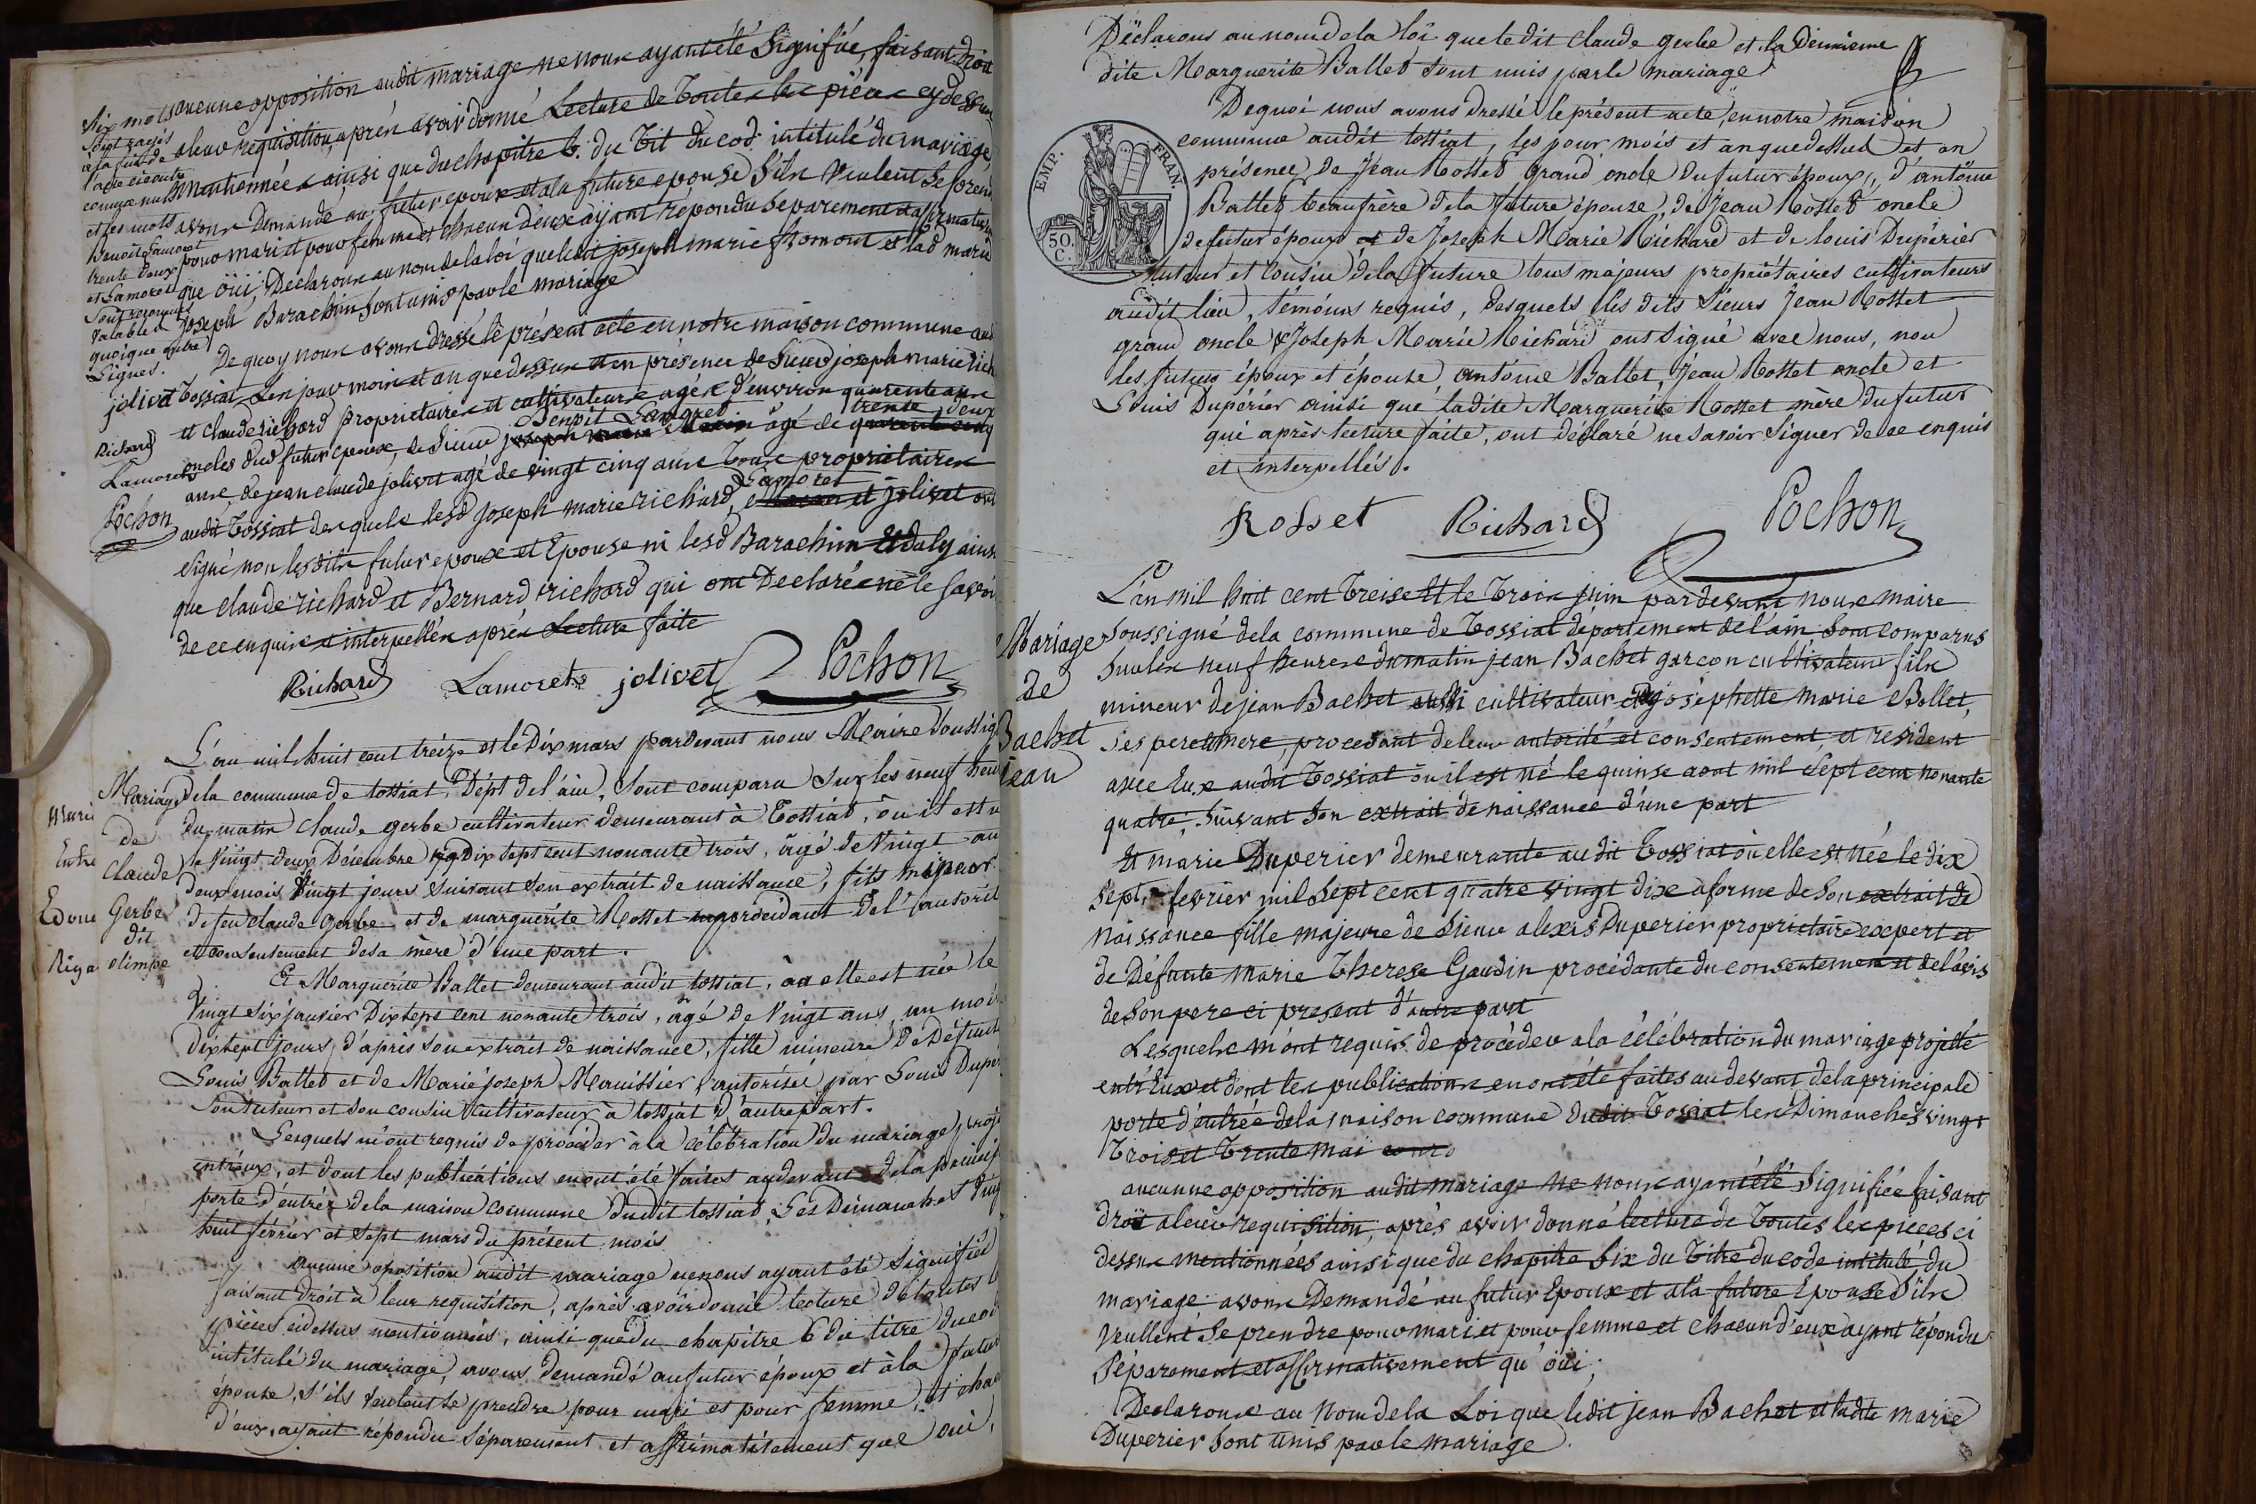 aucune opposition audit mariage ne nous ayant été Signifiée, faisant droit
a leur requisition, aprés avoir donné Lecture de toutes les piéces cy dessus
mentionnées ainsi que du chapitre 6. du tit du cod. intitulé du mariage,
avons Demandé au futur epoux et a la future epouse S'ils veulent Se prendre
pour mari et pour femme et chacun deux ayant repondu Separement et affirmativement
que öüi, Declarons au nom de la loi que ledit joseph marie et lad marie
Joseph Barachin Sont unis par le mariage
De quoy nous avons dressé le présent acte en notre maison commune aud
tossiat Les jour mois et an que dessus et en présence de Sieurs joseph marie rich
et claude richard proprietaires et cultivateurs agés d'environ quarente ans
Benoit Lamoret trente deux
oncles dud futur epoux, de Sieur âgé de
ans, de jean claude jolivet agé de vingt cinq ans tous proprietaires
Lamoret
audit tossiat desquels lesd Joseph marie richard, et jolivet ont
Signé non lesdits futur epoux et Epouse ni lesd Barachin et daly ainsi
que claude richard et Bernard richard qui ont Declarée ne le Savoir
de ce enquis et interpellés aprés Lecture faite
Richard Lamoret jolivet Pochon
Six mots
Sept rayés
a la fin de
l'acte ci contre
comme nuls
et les mots
Benoit Lamoret
trente deux
et Lamoret
Sont reconnus
valables
quoique entre
Lignes.
jolivet
Richard
Lamoret
Pochon
Mariage
de
Claude
Gerbe
dit
olimpe
L'an mil huit cent treize et le Dix mars pardevant nous Maire Soussig
dela commune de tossiat, Dépt de l'ain, Sont comparu Sur les neuf heu
du matin Claude gerbe cultivateur demeurant à Tossiat, où il est n
le Vingt deux Décembre Dix sept cent nonante trois, âgé de Vingt an
deux mois Vingt jours Suivant Son extrait de naissance, fils mineur
de feu Claude Gerbe et de marguerite Rosset procédant de l'autorit
et consentement de sa mère d'une part.
Et Marguerite Ballet demeurant audit tossiat, où elle est née le
Vingt Six janvier Dix Sept cent nonante trois, âgé de Vingt ans, un moi
Dix Sept jours, d'après Son extrait de naissance, fille mineure de Défunt
Louis Ballet et de Marie joseph Manissier, autorisée par Louis Dupé
Son tuteur et Son cousin cultivateur à tossiat d'autre part.
Lesquels m'ont requis de procéder à la célébration du mariage proj
entr'eux, et dont les publications en ont été faites audevant de la princip
porte d'entrée de la maison commune dudit tossiat, Les Dimanches Vingt
huit février et Sept mars du présent mois
aucune oposition audit mariage ne nous ayant été Signifiée
faisant droit à leur requisition, après avoir donné lecture de toutes
pièces cidessus mentionnées, ainsi que du chapitre 6 du titre du cod
intitulé du mariage, avons demandé au futur époux et à la futur
épouse, S'ils veulent Se prendre pour mari et pour femme, et chac
d'eux ayant répondu Séparement et affirmativement que oui,
Déclarons au nom de la loi que le dit Claude gerbe et la
dite Marguerite Ballet Sont unis par le mariage
Dequoi nous avons dressé le présent acte, en notre maison
commune audit tossiat, les jour mois et an que dessus et en
présence de Jean Rosset grand oncle du futur époux, d'antoine
Ballet beaufrère dela future épouse, de Jean Rosset oncle
de futur époux et de Joseph Marie Richard et de louis Dupérier
tuteur et Cousin dela future tous majeurs propriétaires cultivateurs
audit lieu, témoins requis, desquels les dits Sieurs Jean Rosset
grand oncle & Joseph Marie Richard ont Signé avec nous, non
les futurs époux et épouse, antoine Ballet, Jean Rosset oncle et
Louis Dupérier ainsi que ladite Marguerite Rosset mère du futur
qui après lecture faite, ont déclaré ne Savoir Signer de ce enquis
et interpellés.
EMP. FRAN.
50. C.
Rosset Richard Pochon
Mariage
de
Bachet
jean
L'an mil huit cent treise et le trois juin pardevant nous maire
Soussigné dela commune de tossiat département de l'ain Sont comparus
Sur les neuf heures du matin jean Bachet garcon cultivateur fils
mineur de jean Bachet aussi cultivateur et de joséphette marie Bollet,
Ses pere et mere, procedant de leur autorité et consentement, et résident
avec Eux audit tossiat où il est né le quinse aout mil Sept cent nonante
quatre, Suivant Son extrait de naissance d'une part
Et marie Duperier demeurante audit tossiat où elle est née le dix
Sept fevrier mil Sept cent quatre vingt dix a forme de Son extrait de
naissance fille majeure de Sieur alexis Duperier proprietaire expert et
de Défunte marie therese Gaudin procédante du consentement et de l'avis
de Son pere ci present d'autre part
Lesquels m'ont requis de procéder a la célébration du mariage projetté
entr'Eux et dont les publications en ont été faites au devant dela principale
porte d'entrée dela maison commune dudit tossiat les Dimanches vingt
trois et trente mai
aucune opposition audit mariage ne nous ayant été Signifiée faisant
droit a leur requisition, après avoir donné lecture de toutes les pieces ci
dessus mentionnées ainsi que du chapitre Six du titre du code intitulé du
mariage avons Demandé au futur Epoux et a la future Epouse S'ils
veullent Se prendre pour mari et pour femme et chacun d'eux ayant répondu
Séparement et affirmativement qu'oüi,
Declarons au nom dela Loi que ledit jean Bachet et ladite marie
Duperier Sont unis par le mariage.